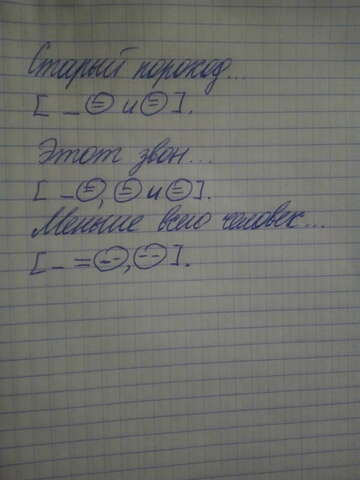 Старый пароход...
[ _ ⊜ и ⊜ ].
Этот звон...
[ _ ⊜, ⊜ и ⊜ ].
Меньше всего человек...
[ _ = ⊝, ⊝ ].